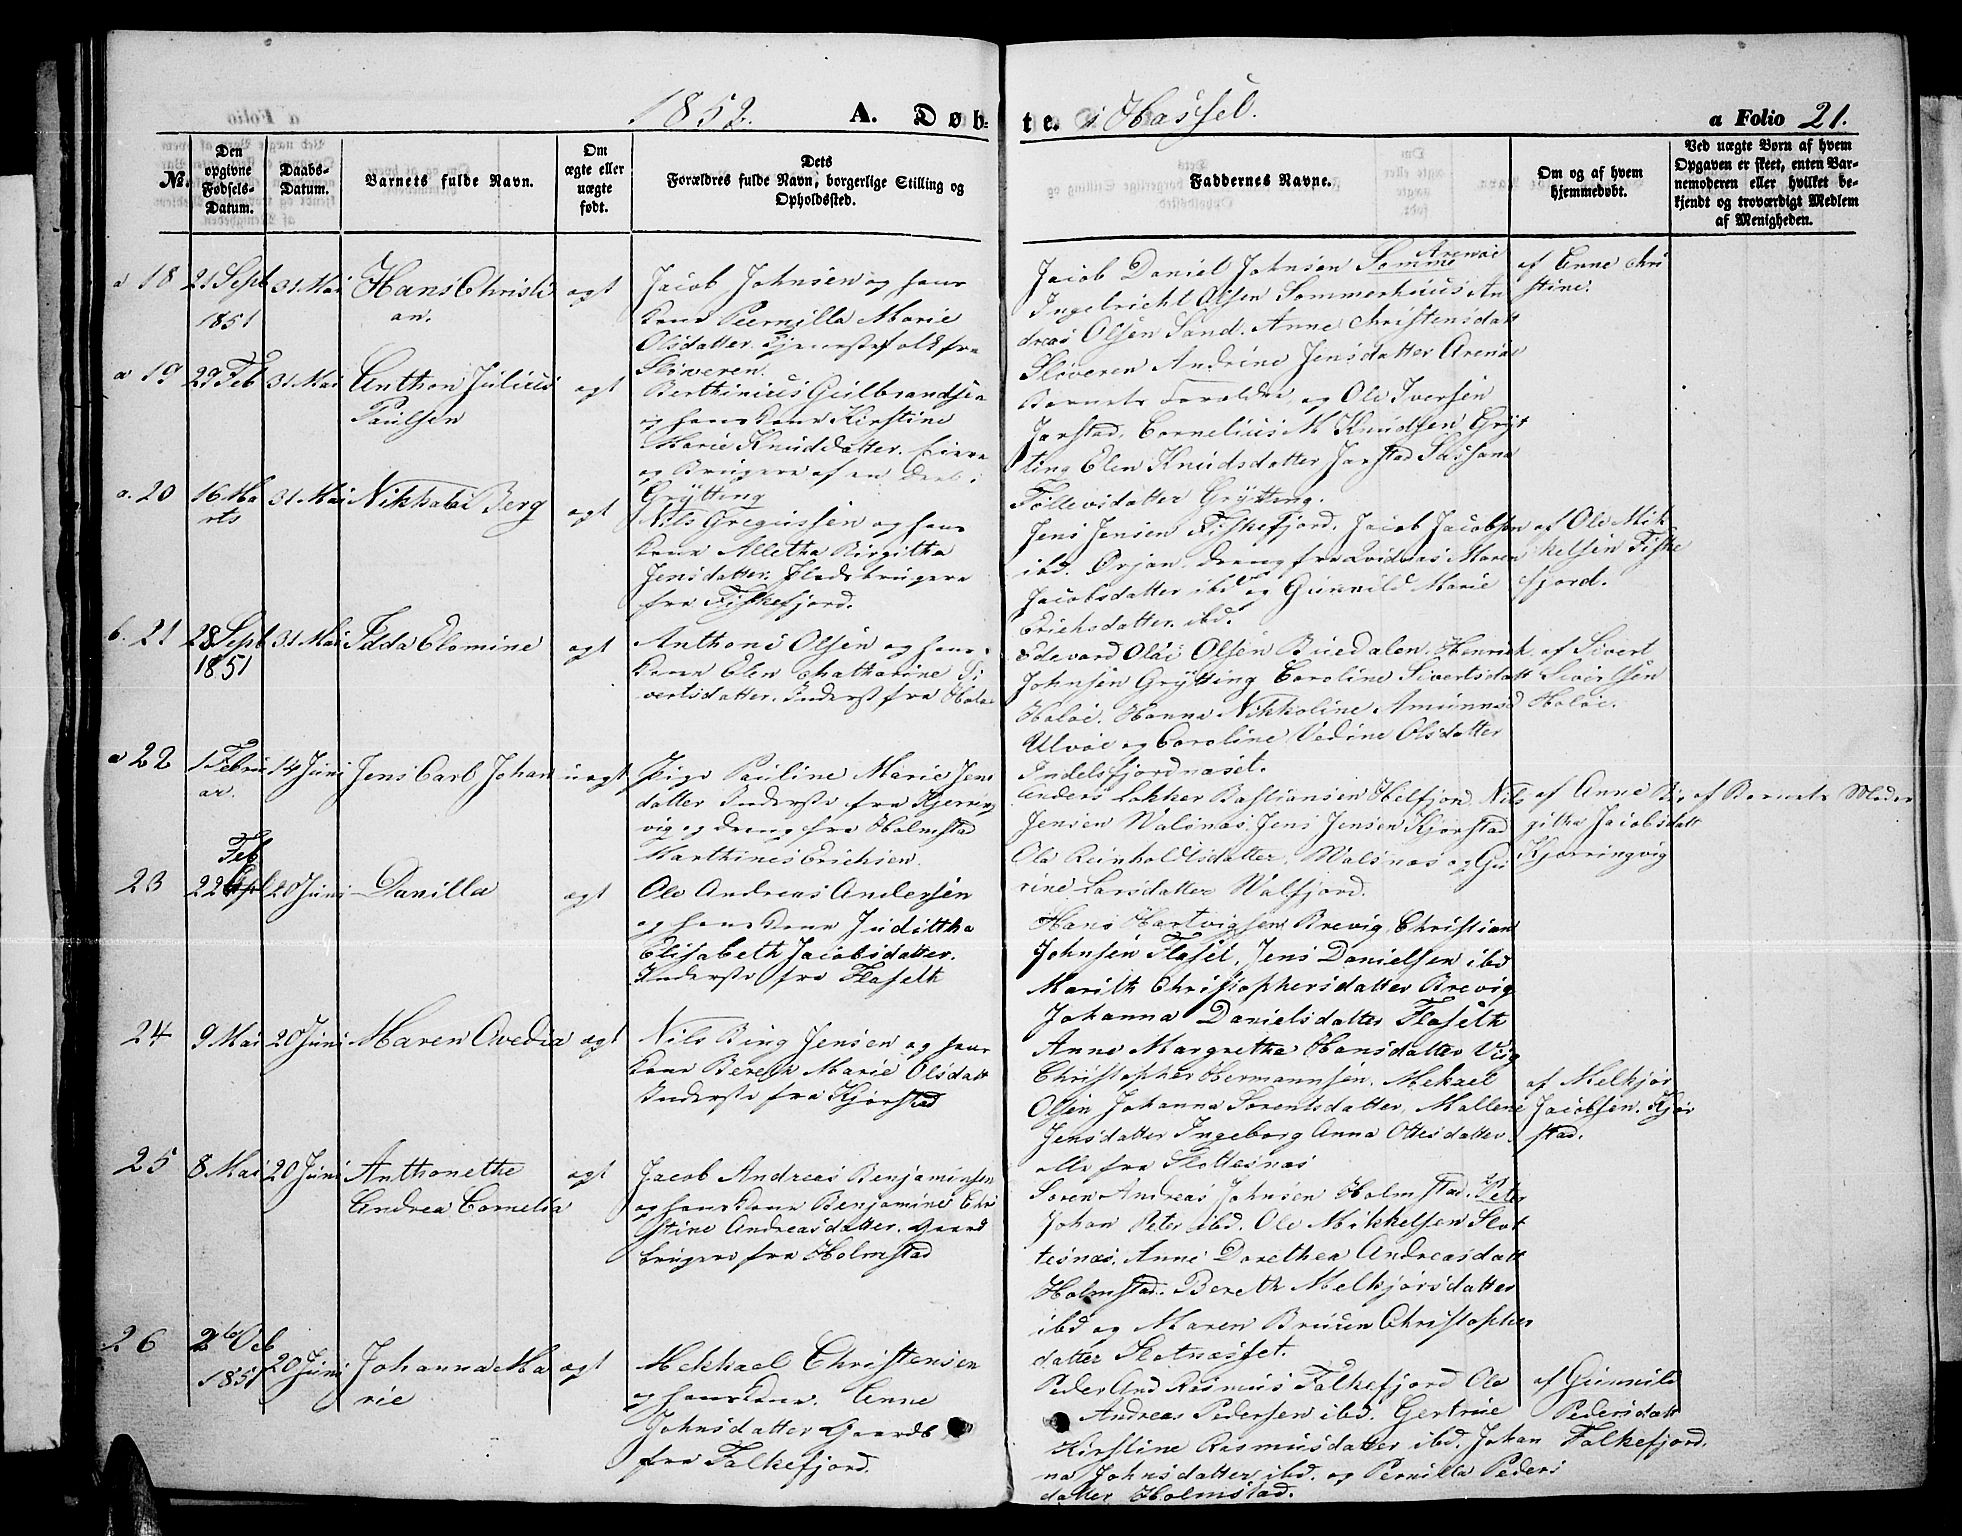 1852. A. Døbte. i Hassel. a Folio 21.
No.
Den opgivne Fødsels-Datum.
Daabs-Datum.
Barnets fulde Navn.
Om ægte eller uægte født.
Dets Forældres fulde Navn, borgerlige Stilling og Opholdssted.
Faddernes Navne.
Om og af hvem hjemmedøbt.
Ved uægte Børn af hvem Opgaven er skeet, enten Barnemoderen eller hvilket bekjendt og troværdigt Medlem af Menigheden.
a 18
21 Sept
1851
31 Mai
Hans Christi
an.
ægt
Jacob Johnsen og hans
Kone Pernilla Marie
Olsdatter. Tjenestefolk fra
Skøveren.
Jacob Daniel Johnsen Arenøe
Ingebricht Olsen Sommerhuus An
dreas Olsen Sand. Anne Christensdatt
Sløveren Andrine Jensdatter Arenøe
af Anne Chri
stine.
a 19
29 Feb
31 Mai
Anthon Julius
Paulsen
ægt
Berthinius Gulbrandsen
og hans Kone Kirstine
Marie Knudsdatter. Eiere
og Brugere af en Deel i
Grytting
Barnets Forældre og Ole Iversen
Jorstad. Cornelius M Knudsen Gryt
ting Elen Knudsdatter Jorstad Susana
Tollevsdatter Grytting.
a. 20
16 Ma
rts
31 Mai
Nikkolai Berg
ægt
Nils Gregussen og hans
Kone Alletha Birgitha
Jensdatter. Pladsbrugere
fra Fiskefjord.
Jens Jensen Fiskefjord. Jacob Jacobsen
ibd. Ørjan. Dreng fra Qvidnes Maren
Jacobsdatter ibd og Gunnild Marie
Erichsdatter. ibd.
af Ole Mik
kelsen Fiske
fjord.
b. 21
28 Sept
1851
31 Mai
Idda Elomine
ægt
Anthoni Olsen og hans
Kone Elen Chatharine Si
vertsdatter. Inderst fra Holøe
Edevard Olai Olsen Buedalen. Henrich
Johnsen Grytting Caroline Sivertsdatt
Holøe. Hanna Nikkoline Amunnsd
Ulvøe og Caroline Vedine Olsdatter
Indelsfjordnæset.
af Sivert
Sivertsen
Holøe.
a 22
1 Febru
ar.
14 Juni
Jens Carl Johan
uægt
Pige Pauline Marie Jens
datter Inderste fra Kjerring
vig og Dreng fra Holmstad
Marthines Erichsen.
Anders Lokker Bastiansen Helfjord, Nils
Jensen Walsnæs. Jens Jensen Kjorstad
Ole Reinholdtsdatter, Walsnæs og Gu
rine Larsdatter Walfjord.
af Anne Bir
githa Jacobsdatt
Kjerringvig
af Barnets Moder
23
Feb
22
20 Juni
Danilla
ægt
Ole Andreas Andersen
og hans Kone Judittha
Elisabeth Jacobsdatter.
Inderste fra Flaselth
Hans Hartvigsen Brevig, Christian
Johnsen Flasel, Jens Danielsen ibd
Marith Christophersdatter Brevig
Johanna Danielsdatter Flaselth
Anne Margretha Hansdatter Vig
24
9 Mai
20 Juni
Maren Ovedia
ægt
Nils Bing Jensen og hans
Kone Bereth Marie Olsdatt
Inderste fra Kjorstad
Christopher Hermannsen. Mekael
Olsen Johanna Sorentsdatter, Mallene
Jensdatter Ingeborg Anna Ottesdatter.
alle fra Slottesnæs
af Melkjør
Jacobsen. Kjør
stad.
25
8 Mai
20 Juni
Anthonethe
Andrea Cornelia
ægt
Jacob Andreas Benjaminsen
og hans Kone Benjamine Chri
stine Andreasdatter. Gaard
brugere fra Holmstad
Soren Andreas Johnsen Holmstad. Peter
Johan Peter ibd. Ole Mikkelsen Slot
tesnæs. Anne Dorethea Andreasdatt
Holmstad. Bereth Melkjørsdatter
ibd og Maren Bruun Christopher
datter Slotnæsset.
26
26 Oct
1851
20 Juni
Johanna Ma
rie
ægt
Mekkael Christensen
og hans Kone. Anne
Johnsdatter Gaardb
fra Falkefjord.
Peder And Rasmus Falkefjord Ole
Andreas Pedersen ibd. Gertrue
Kirstine Rasmusdatter ibd. Johan
na Johnsdatter ibd. og Pernilla Peders
datter Holmstad.
af Gunnild
Pedersdatt
Falkefjord.